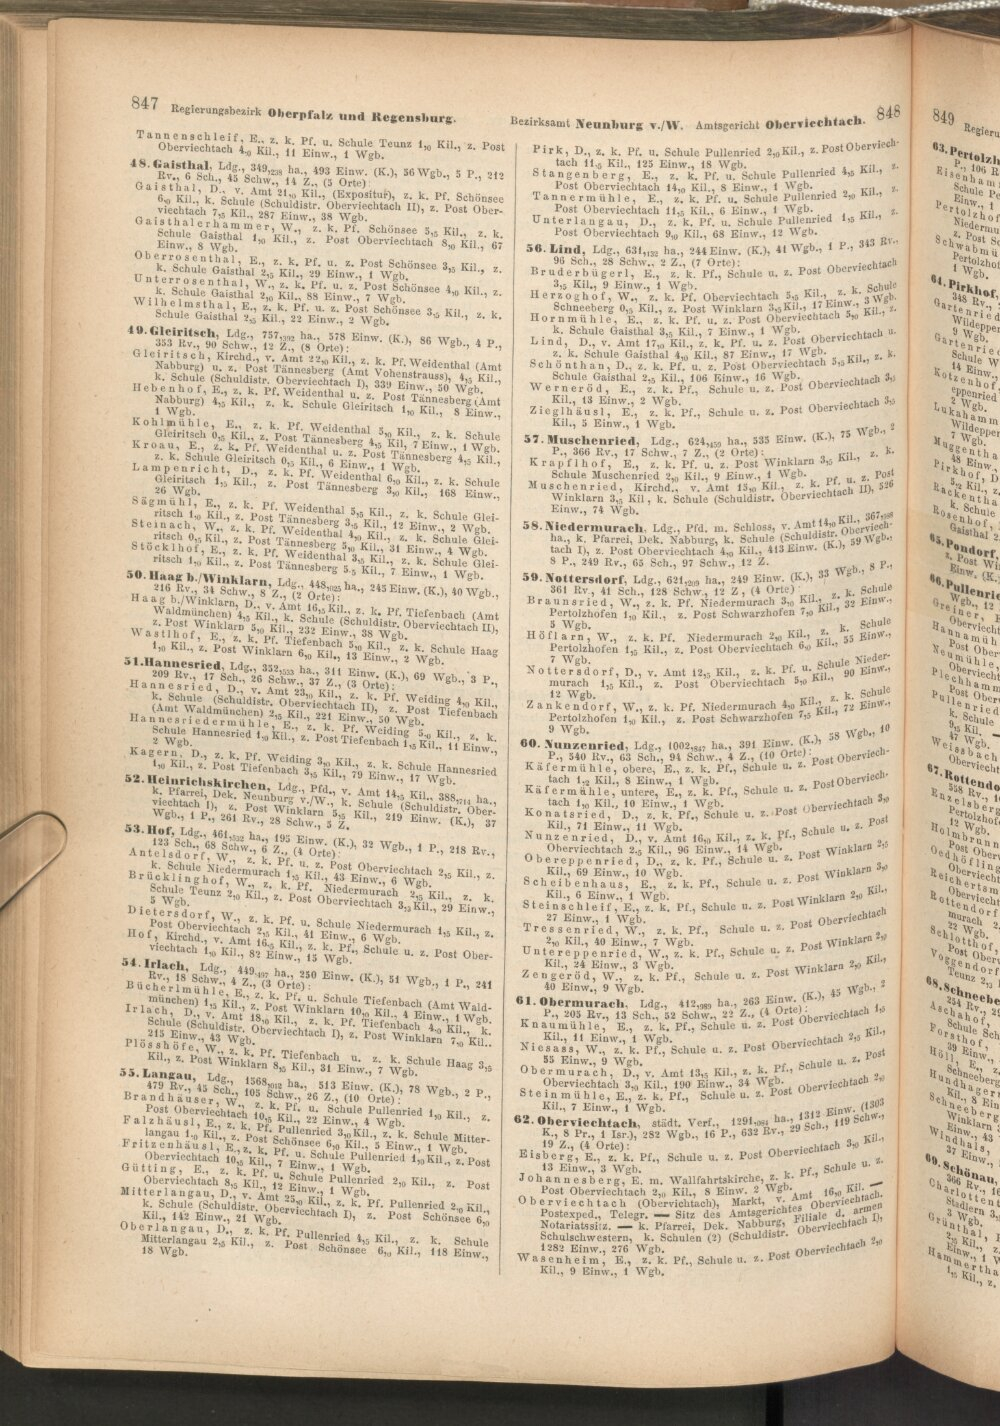 847 Regierungsbezirk Oberpfalz und Regensburg.
Tannenschleif, E., z. k. Pf. u. Schule Teunz 1,0 Kil., z. Post
Oberviechtach 4,0 Kil., 11 Einw., 1 Wgb.
48. Gaisthal, Ldg., 349,1239 ha., 493 Einw. (K.), 56 Wgb., 5 P., 212
Rv., 6 Sch., 45 Schw., 14 Z., (5 Orte):
Gaisthal, D., v. Amt 21,0 Kil., (Expositur), z. k. Pf. Schönsee
6,0 Kil., k. Schule (Schuldistr. Oberviechtach II), z. Post Ober-
viechtach 7,5 Kil., 287 Einw., 38 Wgb.
Gaisthalerhammer, W., z. k. Pf. Schönsee 5,5 Kil., z. k.
Schule Gaisthal 1,0 Kil., z. Post Oberviechtach 8,0 Kil., 67
Einw., 8 Wgb.
Oberrosenthal, E., z. k. Pf. u. z. Post Schönsee 3,5 Kil., z.
k. Schule Gaisthal 2,5 Kil., 29 Einw., 1 Wgb.
Unterrosenthal, W., z. k. Pf. u. z. Post Schönsee 4,0 Kil., z.
k. Schule Gaisthal 2,0 Kil., 88 Einw., 7 Wgb.
Wilhelmsthal, E., z. k. Pf. u. z. Post Schönsee 3,5 Kil., z. k.
Schule Gaisthal 2,5 Kil., 22 Einw., 2 Wgb.
49. Gleiritsch, Ldg., 757,392 ha., 578 Einw. (K.), 86 Wgb., 4 P.,
353 Rv., 90 Schw., 12 Z., (8 Orte):
Gleiritsch, Kirchd., v. Amt 22,0 Kil., z. k. Pf. Weidenthal (Amt
Nabburg) u. z. Post Tännesberg (Amt Vohenstrauss), 4,5 Kil.,
k. Schule (Schuldistr. Oberviechtach I), 339 Einw., 50 Wgb.
Hebenhof, E., z. k. Pf. Weidenthal u. z. Post Tännesberg (Amt
Nabburg) 4,5 Kil., z. k. Schule Gleiritsch 1,0 Kil., 8 Einw.,
1 Wgb.
Kohlmühle, E., z. k. Pf. Weidenthal 5,0 Kil., z. k. Schule
Gleiritsch 0,5 Kil., z. Post Tännesberg 4,5 Kil., 7 Einw., 1 Wgb.
Kroau, E., z. k. Pf. Weidenthal u. z. Post Tännesberg 4,5 Kil.,
z. k. Schule Gleiritsch 0,5 Kil., 6 Einw., 1 Wgb.
Lampenricht, D., z. k. Pf. Weidenthal 6,0 Kil., z. k. Schule
Gleiritsch 1,5 Kil., z. Post Tännesberg 3,0 Kil., 168 Einw.,
26 Wgb.
Sägmühl, E., z. k. Pf. Weidenthal 5,5 Kil., z. k. Schule Glei-
ritsch 1,0 Kil., z. Post Tännesberg 3,5 Kil., 12 Einw., 2 Wgb.
Steinach, W., z. k. Pf. Weidenthal 4,0 Kil., z. k. Schule Glei-
ritsch 0,5 Kil., z. Post Tännesberg 5,0 Kil., 31 Einw., 4 Wgb.
Stöcklhof, E., z. k. Pf. Weidenthal 3,5 Kil., z. k. Schule Glei-
ritsch 1,0 Kil., z. Post Tännesberg 5,5 Kil., 7 Einw., 1 Wgb.
50. Haag b./Winklarn, Ldg., 448,1025 ha., 245 Einw. (K.), 40 Wgb.,
216 Rv., 34 Schw., 8 Z., (2 Orte):
Haag b./Winklarn, D., v. Amt 16,5 Kil., z. k. Pf. Tiefenbach (Amt
Waldmünchen) 4,5 Kil., k. Schule (Schuldistr. Oberviechtach II),
z. Post Winklarn 5,0 Kil., 232 Einw., 38 Wgb.
Wastlhof, E., z. k. Pf. Tiefenbach 5,0 Kil., z. k. Schule Haag
1,0 Kil., z. Post Winklarn 6,0 Kil., 13 Einw., 2 Wgb.
51. Hannesried, Ldg., 352,1533 ha., 311 Einw. (K.), 69 Wgb., 3 P.,
209 Rv., 17 Sch., 26 Schw., 37 Z., (3 Orte):
Hannesried, D., v. Amt 23,0 Kil., z. k. Pf. Weiding 4,0 Kil.,
k. Schule (Schuldistr. Oberviechtach II), z. Post Tiefenbach
(Amt Waldmünchen) 2,5 Kil., 221 Einw., 50 Wgb.
Hannesriedermühle, E., z. k. Pf. Weiding 5,0 Kil., z. k.
Schule Hannesried 1,0 Kil., z. Post Tiefenbach 1,5 Kil., 11 Einw.,
2 Wgb.
Kagern, D., z. k. Pf. Weiding 3,0 Kil., z. k. Schule Hannesried
1,0 Kil., z. Post Tiefenbach 3,5 Kil., 79 Einw., 17 Wgb.
52. Heinrichskirchen, Ldg., Pfd., v. Amt 14,5 Kil., 388,1714 ha.,
k. Pfarrei, Dek. Neunburg v./W., k. Schule (Schuldistr. Ober-
viechtach I), z. Post Winklarn 5,5 Kil., 219 Einw. (K.), 37
Wgb., 1 P., 261 Rv., 28 Schw., 5 Z.
53. Hof, Ldg., 461,532 ha., 195 Einw. (K.), 32 Wgb., 1 P., 218 Rv.,
123 Sch., 68 Schw., 6 Z., (4 Orte):
Antelsdorf, W., z. k. Pf. u. z. Post Oberviechtach 2,5 Kil., z.
k. Schule Niedermurach 1,5 Kil., 43 Einw., 6 Wgb.
Brücklinghof, W., z. k. Pf. Niedermurach 2,5 Kil., z. k.
Schule Teunz 2,0 Kil., z. Post Oberviechtach 3,5 Kil., 29 Einw.,
5 Wgb.
Dietersdorf, W., z. k. Pf. u. Schule Niedermurach 1,5 Kil., z.
Post Oberviechtach 2,5 Kil., 41 Einw., 6 Wgb.
Hof, Kirchd., v. Amt 16,5 Kil., z. k. Pf., Schule u. z. Post Ober-
viechtach 1,0 Kil., 82 Einw., 15 Wgb.
54. Irlach, Ldg., 449,497 ha., 250 Einw. (K.), 51 Wgb., 1 P., 241
Rv., 18 Schw., 4 Z., (3 Orte):
Bücherlmühle, E., z. k. Pf. u. Schule Tiefenbach (Amt Wald-
münchen) 1,5 Kil., z. Post Winklarn 10,0 Kil., 4 Einw., 1 Wgb.
Irlach, D., v. Amt 18,0 Kil., z. k. Pf. Tiefenbach 4,0 Kil., k.
Schule (Schuldistr. Oberviechtach I), z. Post Winklarn 7,0 Kil.,
215 Einw., 43 Wgb.
Plösshöfe, W., z. k. Pf. Tiefenbach u. z. k. Schule Haag 3,5
Kil., z. Post Winklarn 8,5 Kil., 31 Einw., 7 Wgb.
55. Langau, Ldg., 1568,1012 ha., 513 Einw. (K.), 78 Wgb., 2 P.,
479 Rv., 45 Sch., 105 Schw., 26 Z., (10 Orte):
Brandhäuser, W., z. k. Pf. u. Schule Pullenried 1,0 Kil., z.
Post Oberviechtach 10,5 Kil., 22 Einw., 4 Wgb.
Falzhäusl, E., z. k. Pf. Pullenried 3,0 Kil., z. k. Schule Mitter-
langau 1,0 Kil., z. Post Schönsee 6,0 Kil., 5 Einw., 1 Wgb.
Fritzenhäusl, E., z. k. Pf. u. Schule Pullenried 1,0 Kil., z. Post
Oberviechtach 10,5 Kil., 7 Einw., 1 Wgb.
Gütting, E., z. k. Pf. u. Schule Pullenried 2,0 Kil., z. Post
Oberviechtach 8,5 Kil., 12 Einw., 1 Wgb.
Mitterlangau, D., v. Amt 25,0 Kil., z. k. Pf. Pullenried 2,0 Kil.,
k. Schule (Schuldistr. Oberviechtach I), z. Post Schönsee 6,0
Kil., 142 Einw., 21 Wgb.
Oberlangau, D., z. k. Pf. Pullenried 4,5 Kil., z. k. Schule
Mitterlangau 2,5 Kil., z. Post Schönsee 6,0 Kil., 118 Einw.,
18 Wgb.
Bezirksamt Neunburg v./W. Amtsgericht Oberviechtach. 848
Pirk, D., z. k. Pf. u. Schule Pullenried 2,0 Kil., z. Post Oberviech-
tach 11,5 Kil., 125 Einw., 18 Wgb.
Stangenberg, E., z. k. Pf. u. Schule Pullenried 4,5 Kil., z.
Post Oberviechtach 14,0 Kil., 8 Einw., 1 Wgb.
Tannermühle, E., z. k. Pf. u. Schule Pullenried 2,0 Kil., z.
Post Oberviechtach 11,5 Kil., 6 Einw., 1 Wgb.
Unterlangau, D., z. k. Pf. u. Schule Pullenried 1,5 Kil., z.
Post Oberviechtach 9,0 Kil., 68 Einw., 12 Wgb.
56. Lind, Ldg., 631,1132 ha., 244 Einw. (K.), 41 Wgb., 1 P., 343 Rv.,
96 Sch., 28 Schw., 2 Z., (7 Orte):
Bruderbügerl, E., z. k. Pf., Schule u. z. Post Oberviechtach
3,5 Kil., 9 Einw., 1 Wgb.
Herzoghof, W., z. k. Pf. Oberviechtach 5,5 Kil., z. k. Schule
Schneeberg 0,5 Kil., z. Post Winklarn 3,5 Kil., 17 Einw., 3 Wgb.
Hornmühle, E., z. k. Pf. u. z. Post Oberviechtach 5,0 Kil., z.
k. Schule Gaisthal 3,5 Kil., 7 Einw., 1 Wgb.
Lind, D., v. Amt 17,0 Kil., z. k. Pf. u. z. Post Oberviechtach u.
z. k. Schule Gaisthal 4,0 Kil., 87 Einw., 17 Wgb.
Schönthan, D., z. k. Pf. u. z. Post Oberviechtach 5,5 Kil., z. k.
Schule Gaisthal 2,5 Kil., 106 Einw., 16 Wgb.
Werneröd, E., z. k. Pf., Schule u. z. Post Oberviechtach 3,5
Kil., 13 Einw., 2 Wgb.
Zieglhäusl, E., z. k. Pf., Schule u. z. Post Oberviechtach 3,5
Kil., 5 Einw., 1 Wgb.
57. Muschenried, Ldg., 624,459 ha., 535 Einw. (K.), 75 Wgb., 2
P., 366 Rv., 17 Schw., 7 Z., (2 Orte):
Krapflhof, E., z. k. Pf. u. z. Post Winklarn 3,5 Kil., z. k.
Schule Muschenried 2,0 Kil., 9 Einw., 1 Wgb.
Muschenried, Kirchd., v. Amt 15,0 Kil., z. k. Pf. u. z. Post
Winklarn 3,5 Kil., k. Schule (Schuldistr. Oberviechtach II), 526
Einw., 74 Wgb.
58. Niedermurach, Ldg., Pfd. m. Schloss, v. Amt 14,0 Kil., 367,1088
ha., k. Pfarrei, Dek. Nabburg, k. Schule (Schuldistr. Oberviech-
tach I), z. Post Oberviechtach 4,0 Kil., 413 Einw. (K.), 59 Wgb.,
8 P., 249 Rv., 65 Sch., 97 Schw., 12 Z.
59. Nottersdorf, Ldg., 621,209 ha., 249 Einw. (K.), 33 Wgb., 8 P.,
361 Rv., 41 Sch., 128 Schw., 12 Z., (4 Orte):
Braunsried, W., z. k. Pf. Niedermurach 3,0 Kil., z. k. Schule
Pertolzhofen 1,0 Kil., z. Post Schwarzhofen 7,0 Kil., 32 Einw.,
5 Wgb.
Höflarn, W., z. k. Pf. Niedermurach 2,0 Kil., z. k. Schule
Pertolzhofen 1,5 Kil., z. Post Oberviechtach 6,0 Kil., 55 Einw.,
7 Wgb.
Nottersdorf, D., v. Amt 12,5 Kil., z. k. Pf. u. Schule Nieder-
murach 1,5 Kil., z. Post Oberviechtach 5,0 Kil., 90 Einw.,
12 Wgb.
Zankendorf, W., z. k. Pf. Niedermurach 4,0 Kil., z. k. Schule
Pertolzhofen 1,0 Kil., z. Post Schwarzhofen 7,5 Kil., 72 Einw.,
9 Wgb.
60. Nunzenried, Ldg., 1002,847 ha., 391 Einw. (K.), 58 Wgb., 10
P., 540 Rv., 63 Sch., 94 Schw., 4 Z., (10 Orte):
Käfermühle, obere, E., z. k. Pf., Schule u. z. Post Oberviech-
tach 1,0 Kil., 8 Einw., 1 Wgb.
Käfermühle, untere, E., z. k. Pf., Schule u. z. Post Oberviech-
tach 1,0 Kil., 10 Einw., 1 Wgb.
Konatsried, D., z. k. Pf., Schule u. z. Post Oberviechtach 3,0
Kil., 71 Einw., 11 Wgb.
Nunzenried, D., v. Amt 16,0 Kil., z. k. Pf., Schule u. z. Post
Oberviechtach 2,5 Kil., 96 Einw., 14 Wgb.
Obereppenried, D., z. k. Pf., Schule u. z. Post Winklarn 2,5
Kil., 69 Einw., 10 Wgb.
Scheibenhaus, E., z. k. Pf., Schule u. z. Post Winklarn 3,0
Kil., 6 Einw., 1 Wgb.
Steinschleif, E., z. k. Pf., Schule u. z. Post Winklarn 2,0 Kil.,
27 Einw., 1 Wgb.
Tressenried, W., z. k. Pf., Schule u. z. Post Oberviechtach
2,0 Kil., 40 Einw., 7 Wgb.
Untereppenried, W., z. k. Pf., Schule u. z. Post Winklarn 2,0
Kil., 24 Einw., 3 Wgb.
Zengeröd, W., z. k. Pf., Schule u. z. Post Winklarn 2,0 Kil.,
40 Einw., 9 Wgb.
61. Obermurach, Ldg., 412,989 ha., 263 Einw. (K.), 45 Wgb., 2
P., 205 Rv., 13 Sch., 52 Schw., 22 Z., (4 Orte):
Knaumühle, E., z. k. Pf., Schule u. z. Post Oberviechtach 1,5
Kil., 11 Einw., 1 Wgb.
Niesass, W., z. k. Pf., Schule u. z. Post Oberviechtach 2,5 Kil.,
55 Einw., 9 Wgb.
Obermurach, D., v. Amt 13,5 Kil., z. k. Pf., Schule u. z. Post
Oberviechtach 3,0 Kil., 190 Einw., 34 Wgb.
Steinmühle, E., z. k. Pf., Schule u. z. Post Oberviechtach 2,0
Kil., 7 Einw., 1 Wgb.
62. Oberviechtach, städt. Verf., 1291,084 ha., 1312 Einw. (1303
K., 8 Pr., 1 Isr.), 282 Wgb., 16 P., 632 Rv., 29 Sch., 119 Schw.,
19 Z., (4 Orte):
Eisberg, E., z. k. Pf., Schule u. z. Post Oberviechtach 3,0 Kil.,
13 Einw., 3 Wgb.
Johannesberg, E. m. Wallfahrtskirche, z. k. Pf., Schule u. z.
Post Oberviechtach 2,0 Kil., 8 Einw. 2 Wgb.
Oberviechtach (Oberviechtach), Markt, v. Amt 16,0 Kil. —
Postexped., Telegr. — Sitz des Amtsgerichtes Oberviechtach.
Notariatssitz. — k. Pfarrei, Dek. Nabburg, Filiale d. armen
Schulschwestern, k. Schulen (2) (Schuldistr. Oberviechtach I),
1282 Einw., 276 Wgb.
Wasenheim, E., z. k. Pf., Schule u. z. Post Oberviechtach 2,0
Kil., 9 Einw., 1 Wgb.
849
63. Pertolzh
64. Pirkhof,
65. Pondorf,
66. Pullenrie
67. Rottendo
68. Schneebe
69. Schönau,